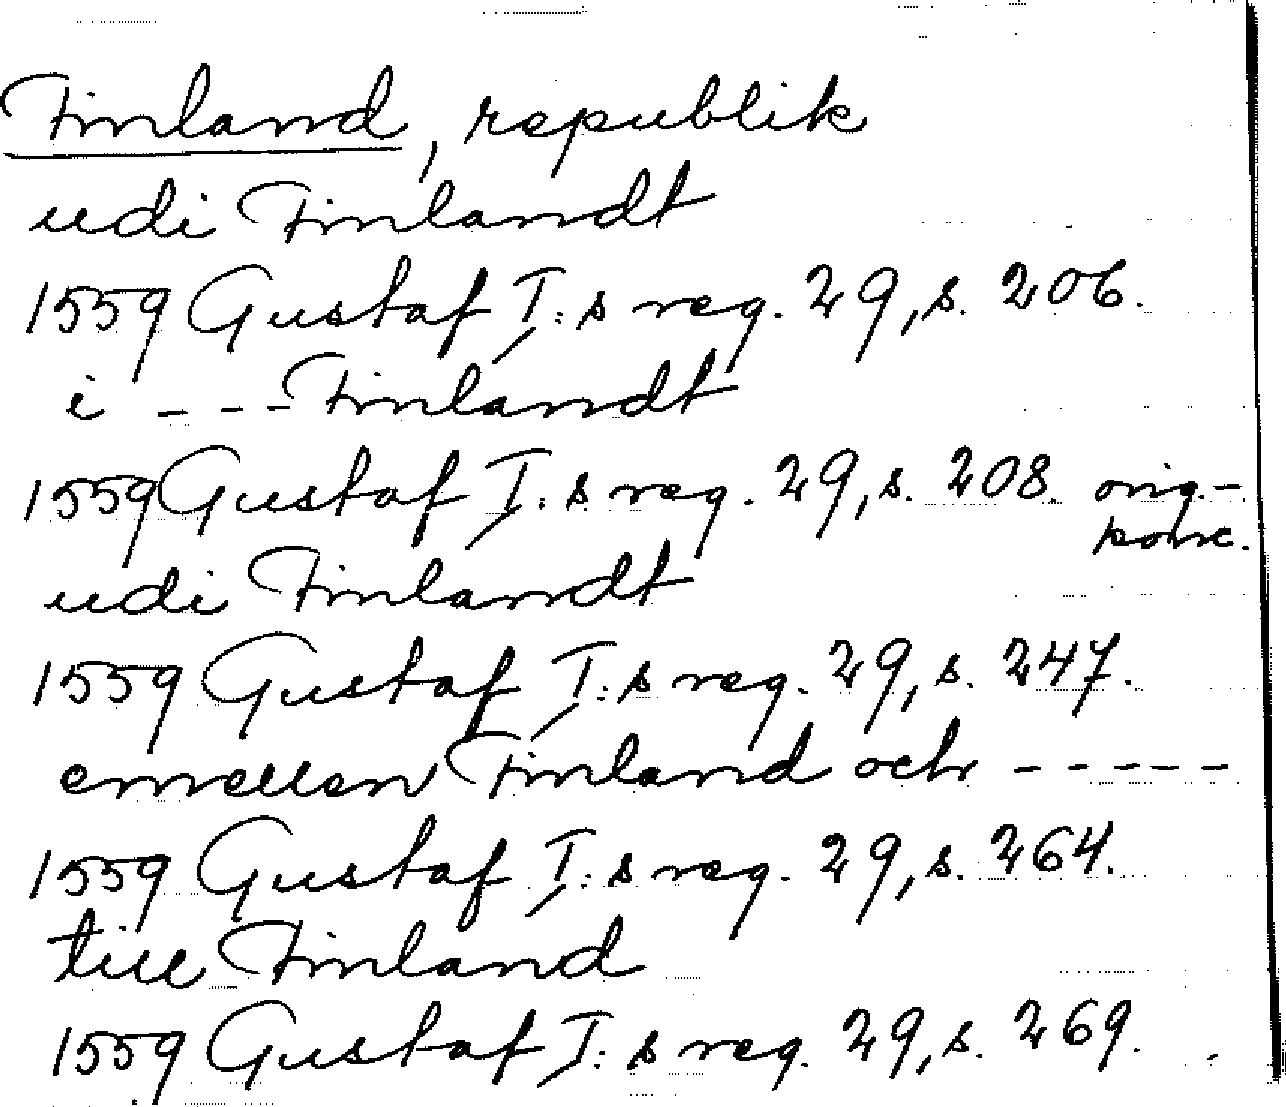 Finland, republik
udi Finlandt
1559 Gustaf I:s reg. 29, s. 206.
i - - - Finlandt
1559 Gustaf I:s reg. 29, s. 208. orig.-
konc.
udi Finlandt
1559 Gustaf I:s reg. 29, s. 247.
emellen Finland och - - - - -
1559 Gustaf I:s reg. 29, s. 264.
till Finland
1559 Gustaf I:s reg. 29, s. 269.